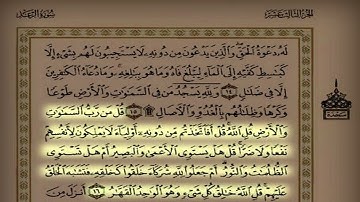 الجزء الثالث عشر
سورة الرعد
لَهُۥ دَعْوَةُ ٱلْحَقِّ وَٱلَّذِينَ يَدْعُونَ مِن دُونِهِۦ لَا يَسْتَجِيبُونَ لَهُم بِشَىْءٍ إِلَّا
كَبَٰسِطِ كَفَّيْهِ إِلَى ٱلْمَآءِ لِيَبْلُغَ فَاهُ وَمَا هُوَ بِبَٰلِغِهِۦ وَمَا دُعَآءُ ٱلْكَٰفِرِينَ
إِلَّا فِى ضَلَٰلٍ ١٤ وَلِلَّهِ يَسْجُدُ مَن فِى ٱلسَّمَٰوَٰتِ وَٱلْأَرْضِ طَوْعًا
وَكَرْهًا وَظِلَٰلُهُم بِٱلْغُدُوِّ وَٱلْءَاصَالِ ۩ ١٥ قُلْ مَن رَّبُّ ٱلسَّمَٰوَٰتِ
وَٱلْأَرْضِ قُلِ ٱللَّهُ قُلْ أَفَٱتَّخَذْتُم مِّن دُونِهِۦٓ أَوْلِيَآءَ لَا يَمْلِكُونَ لِأَنفُسِهِمْ
نَفْعًا وَلَا ضَرًّا قُلْ هَلْ يَسْتَوِى ٱلْأَعْمَىٰ وَٱلْبَصِيرُ أَمْ هَلْ تَسْتَوِى
ٱلظُّلُمَٰتُ وَٱلنُّورُ أَمْ جَعَلُوا۟ لِلَّهِ شُرَكَآءَ خَلَقُوا۟ كَخَلْقِهِۦ فَتَشَٰبَهَ ٱلْخَلْقُ
عَلَيْهِمْ قُلِ ٱللَّهُ خَٰلِقُ كُلِّ شَىْءٍ وَهُوَ ٱلْوَٰحِدُ ٱلْقَهَّٰرُ ١٦ أَنزَلَ مِنَ